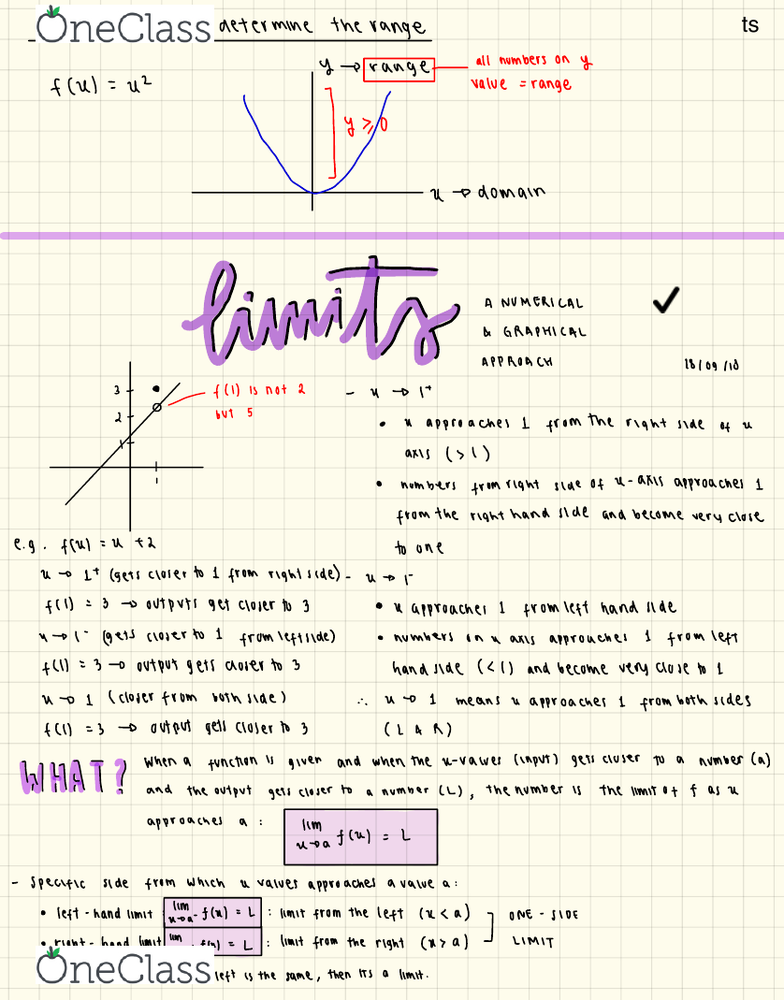 OneClass
determine the range
ts
f(x) = x²
y → range
all numbers on y
value = range
y ≥ 0
x → domain
limits
A NUMERICAL
& GRAPHICAL
APPROACH
18/09/18
3
2
1
1
f(1) is not 2
but 5
e.g. f(x) = x + 2
x → 1⁺ (gets closer to 1 from right side)
f(1) = 3 → outputs get closer to 3
x → 1⁻ (gets closer to 1 from left side)
f(1) = 3 → output gets closer to 3
x → 1 (closer from both side)
f(1) = 3 → output gets closer to 3
- x → 1⁺
• x approaches 1 from the right side of x
axis (>1)
• numbers from right side of x-axis approaches 1
from the right hand side and become very close
to one
- x → 1⁻
• x approaches 1 from left hand side
• numbers on x axis approaches 1 from left
hand side (<1) and become very close to 1
∴ x → 1 means x approaches 1 from both sides
(L & R)
WHAT?
When a function is given and when the x-values (input) gets closer to a number (a)
and the output gets closer to a number (L), the number is the limit of f as x
approaches a:
lim x→a f(x) = L
- Specific side from which x values approaches a value a:
• left-hand limit lim x→a⁻ f(x) = L : limit from the left (x < a)
• right-hand limit lim f(x) = L : limit from the right (x > a)
ONE-SIDE
LIMIT
OneClass
left is the same, then its a limit.